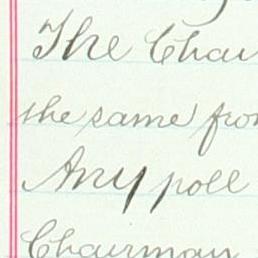 The Chai
the same fro
Any poll
Chairman